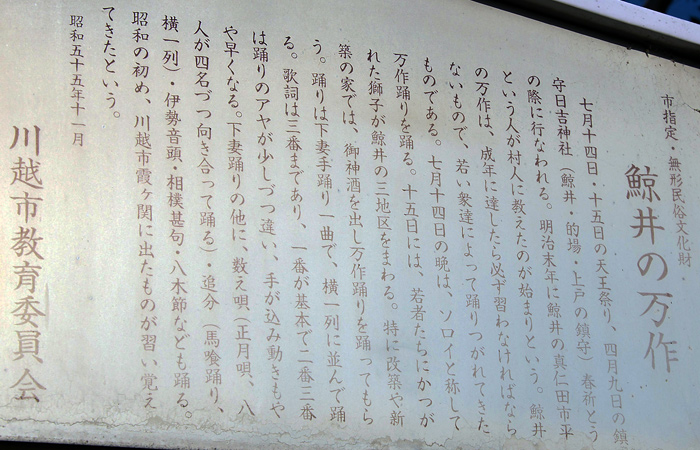 市指定・無形民俗文化財
鯨井の万作
七月十四日・十五日の天王祭り、四月九日の鎮
守日吉神社（鯨井・的場・上戸の鎮守）春祈とう
の際に行なわれる。明治末年に鯨井の真仁田市平
という人が村人に教えたのが始まりという。鯨井
の万作は、成年に達したら必ず習わなければなら
ないもので、若い衆達によって踊りつがれてきた
ものである。七月十四日の晩は、ソロイと称して
万作踊りを踊る。十五日には、若者たちにかつが
れた獅子が鯨井の三地区をまわる。特に改築や新
築の家では、御神酒を出し万作踊りを踊ってもら
う。踊りは下妻手踊り一曲で、横一列に並んで踊
る。歌詞は三番まであり、一番が基本で二番三番
は踊りのアヤが少しづつ違い、手が込み動きもや
や早くなる。下妻踊りの他に、数え唄（正月唄、八
人が四名づつ向き合って踊る）追分（馬喰踊り、
横一列）・伊勢音頭・相模甚句・八木節なども踊る。
昭和の初め、川越市霞ヶ関に出たものが習い覚え
てきたという。
昭和五十五年十一月
川越市教育委員会